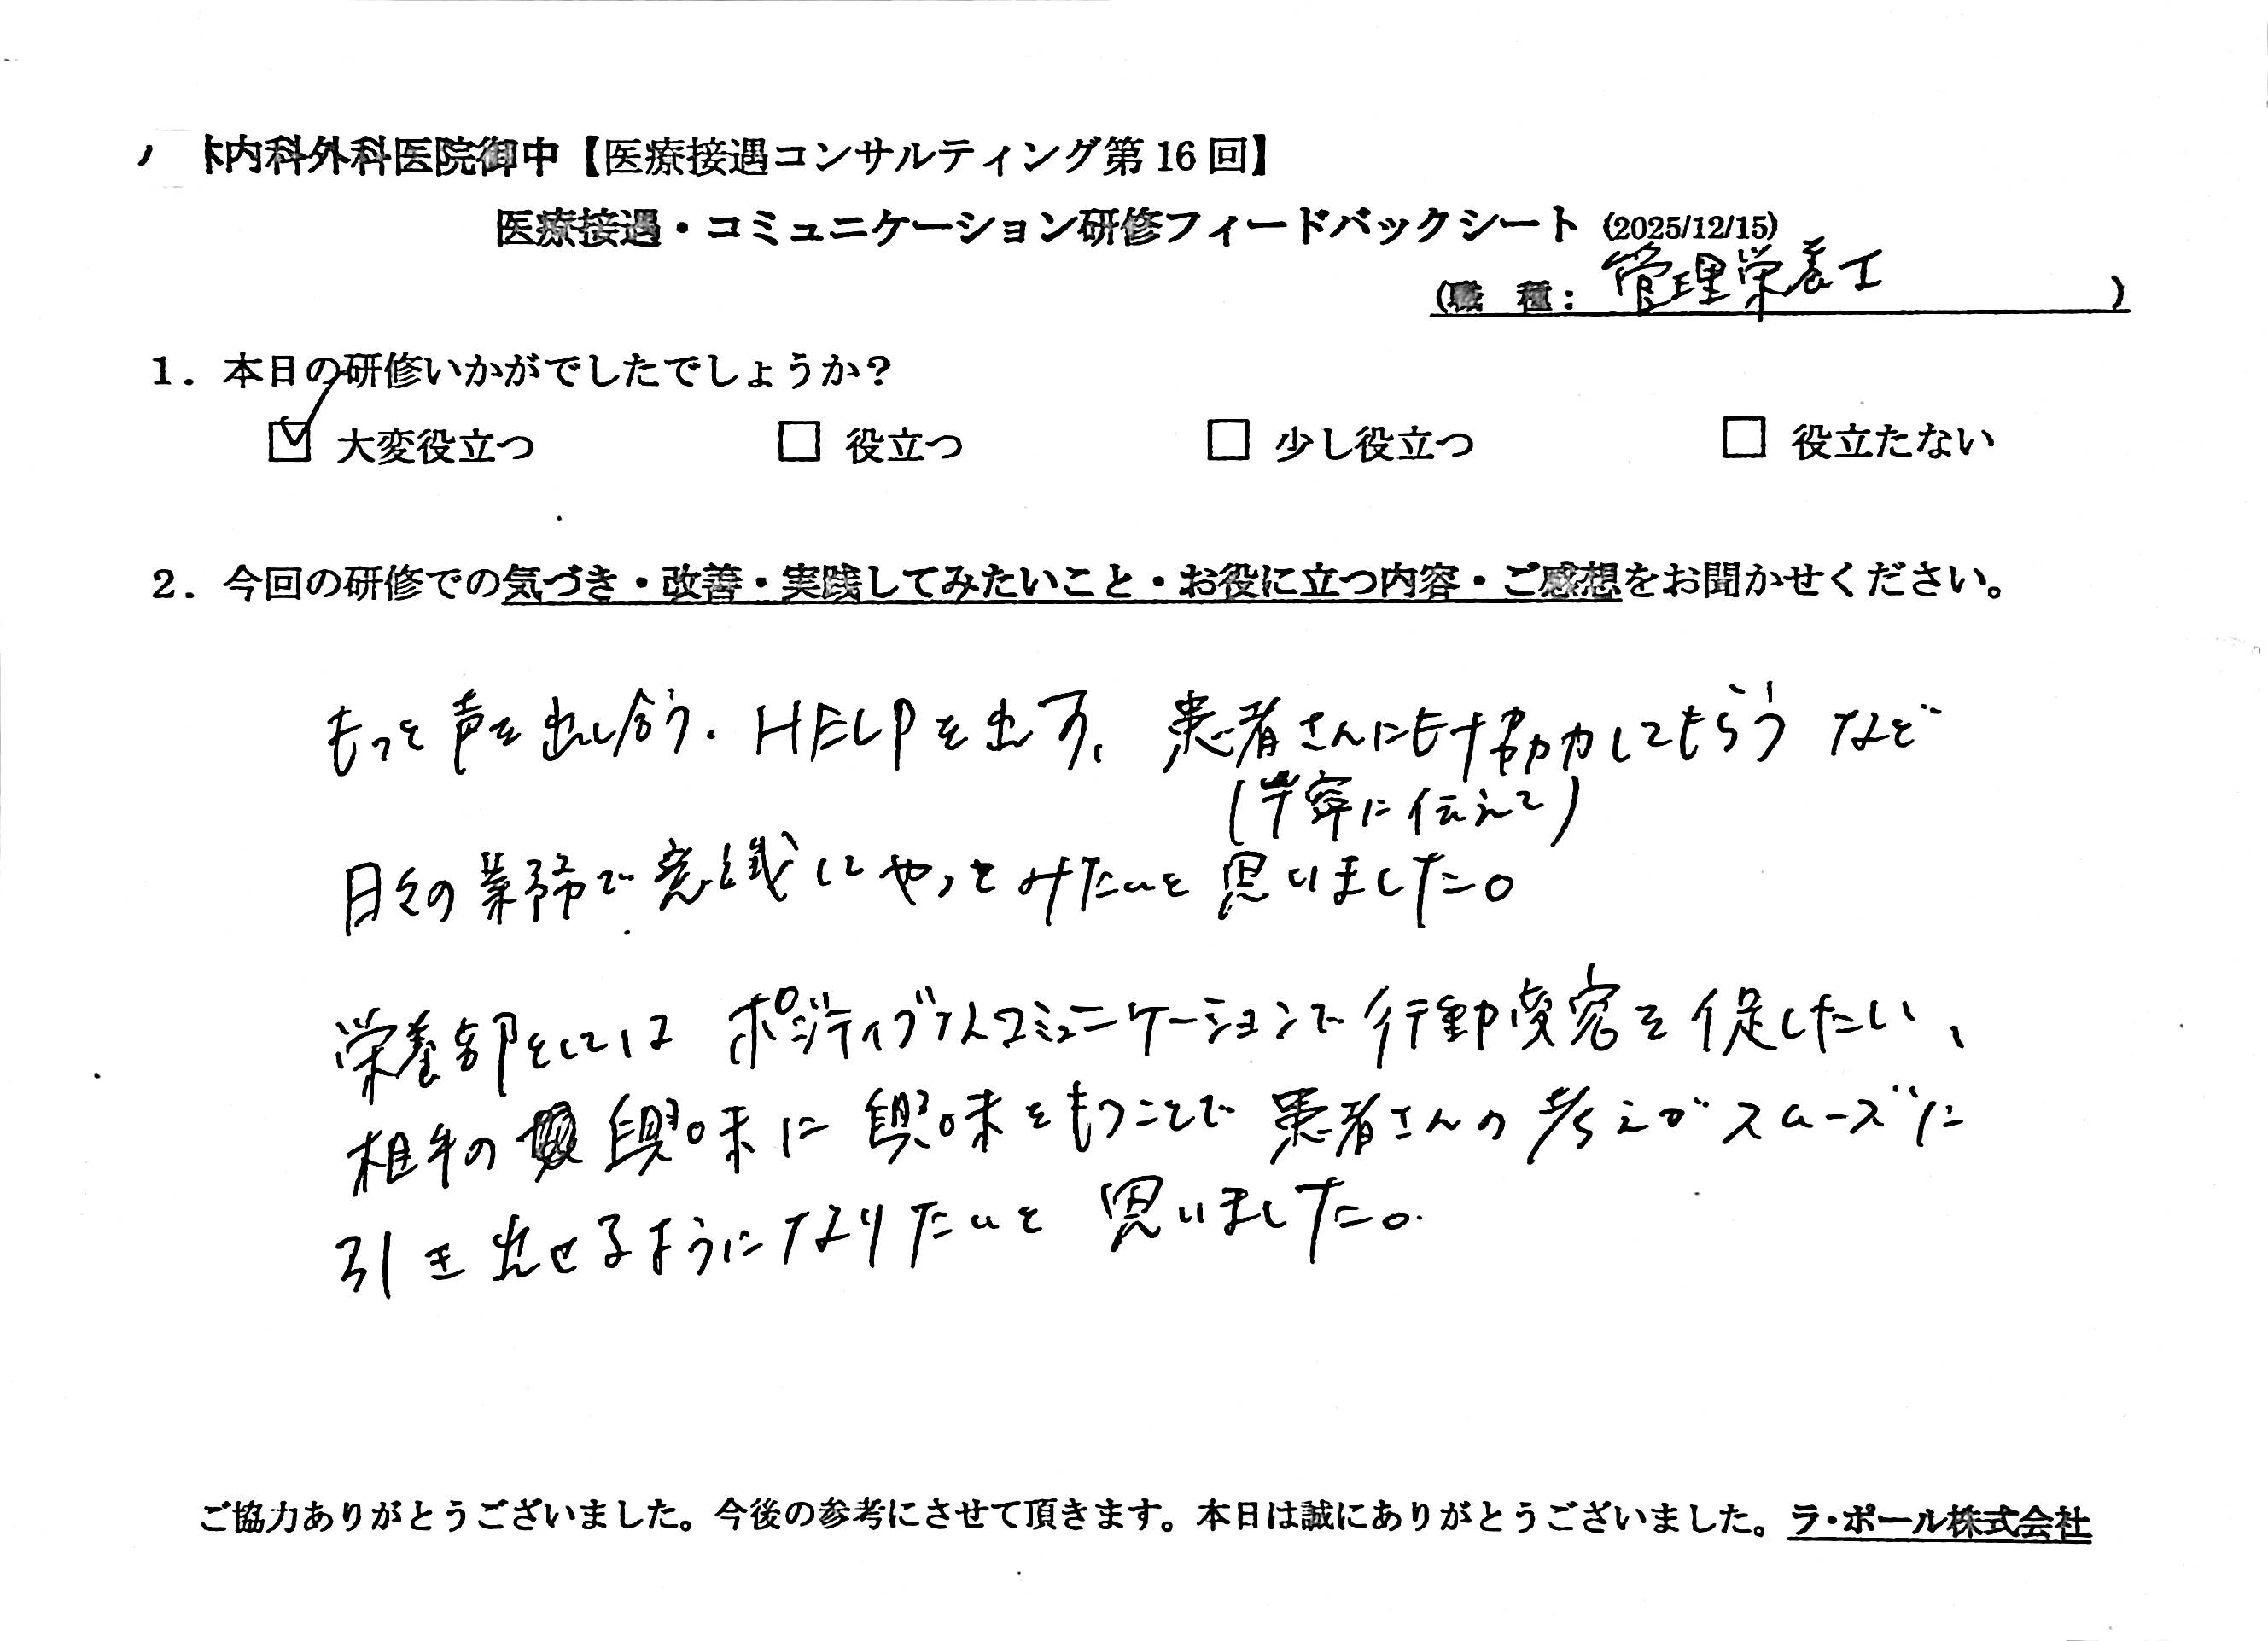 内科外科医院御中【医療接遇コンサルティング第16回】
医療接遇・コミュニケーション研修フィードバックシート (2025/12/15)
(職 種: 管理栄養士 )
1. 本日の研修いかがでしたでしょうか?
☑ 大変役立つ □ 役立つ □ 少し役立つ □ 役立たない
2. 今回の研修での気づき・改善・実践してみたいこと・お役に立つ内容・ご感想をお聞かせください。
もっと声を出し合う、HELPを出す、患者さんにも協力してもらう など
(丁寧に伝えて)
日々の業務で意識してやってみたいと思いました。
栄養部としては ポジティブなコミュニケーションで行動変容を促したい、
相手の 興味に興味をもつことで患者さんの考えがスムーズに
引き出せるようになりたいと思いました。
ご協力ありがとうございました。今後の参考にさせて頂きます。本日は誠にありがとうございました。ラ・ポール株式会社